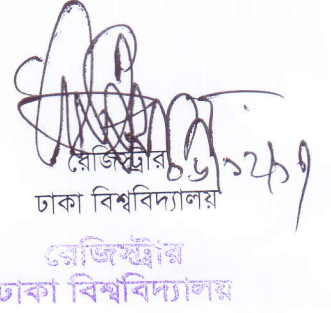 রেজিস্ট্রার
ঢাকা বিশ্ববিদ্যালয়
রেজিস্ট্রার
ঢাকা বিশ্ববিদ্যালয়